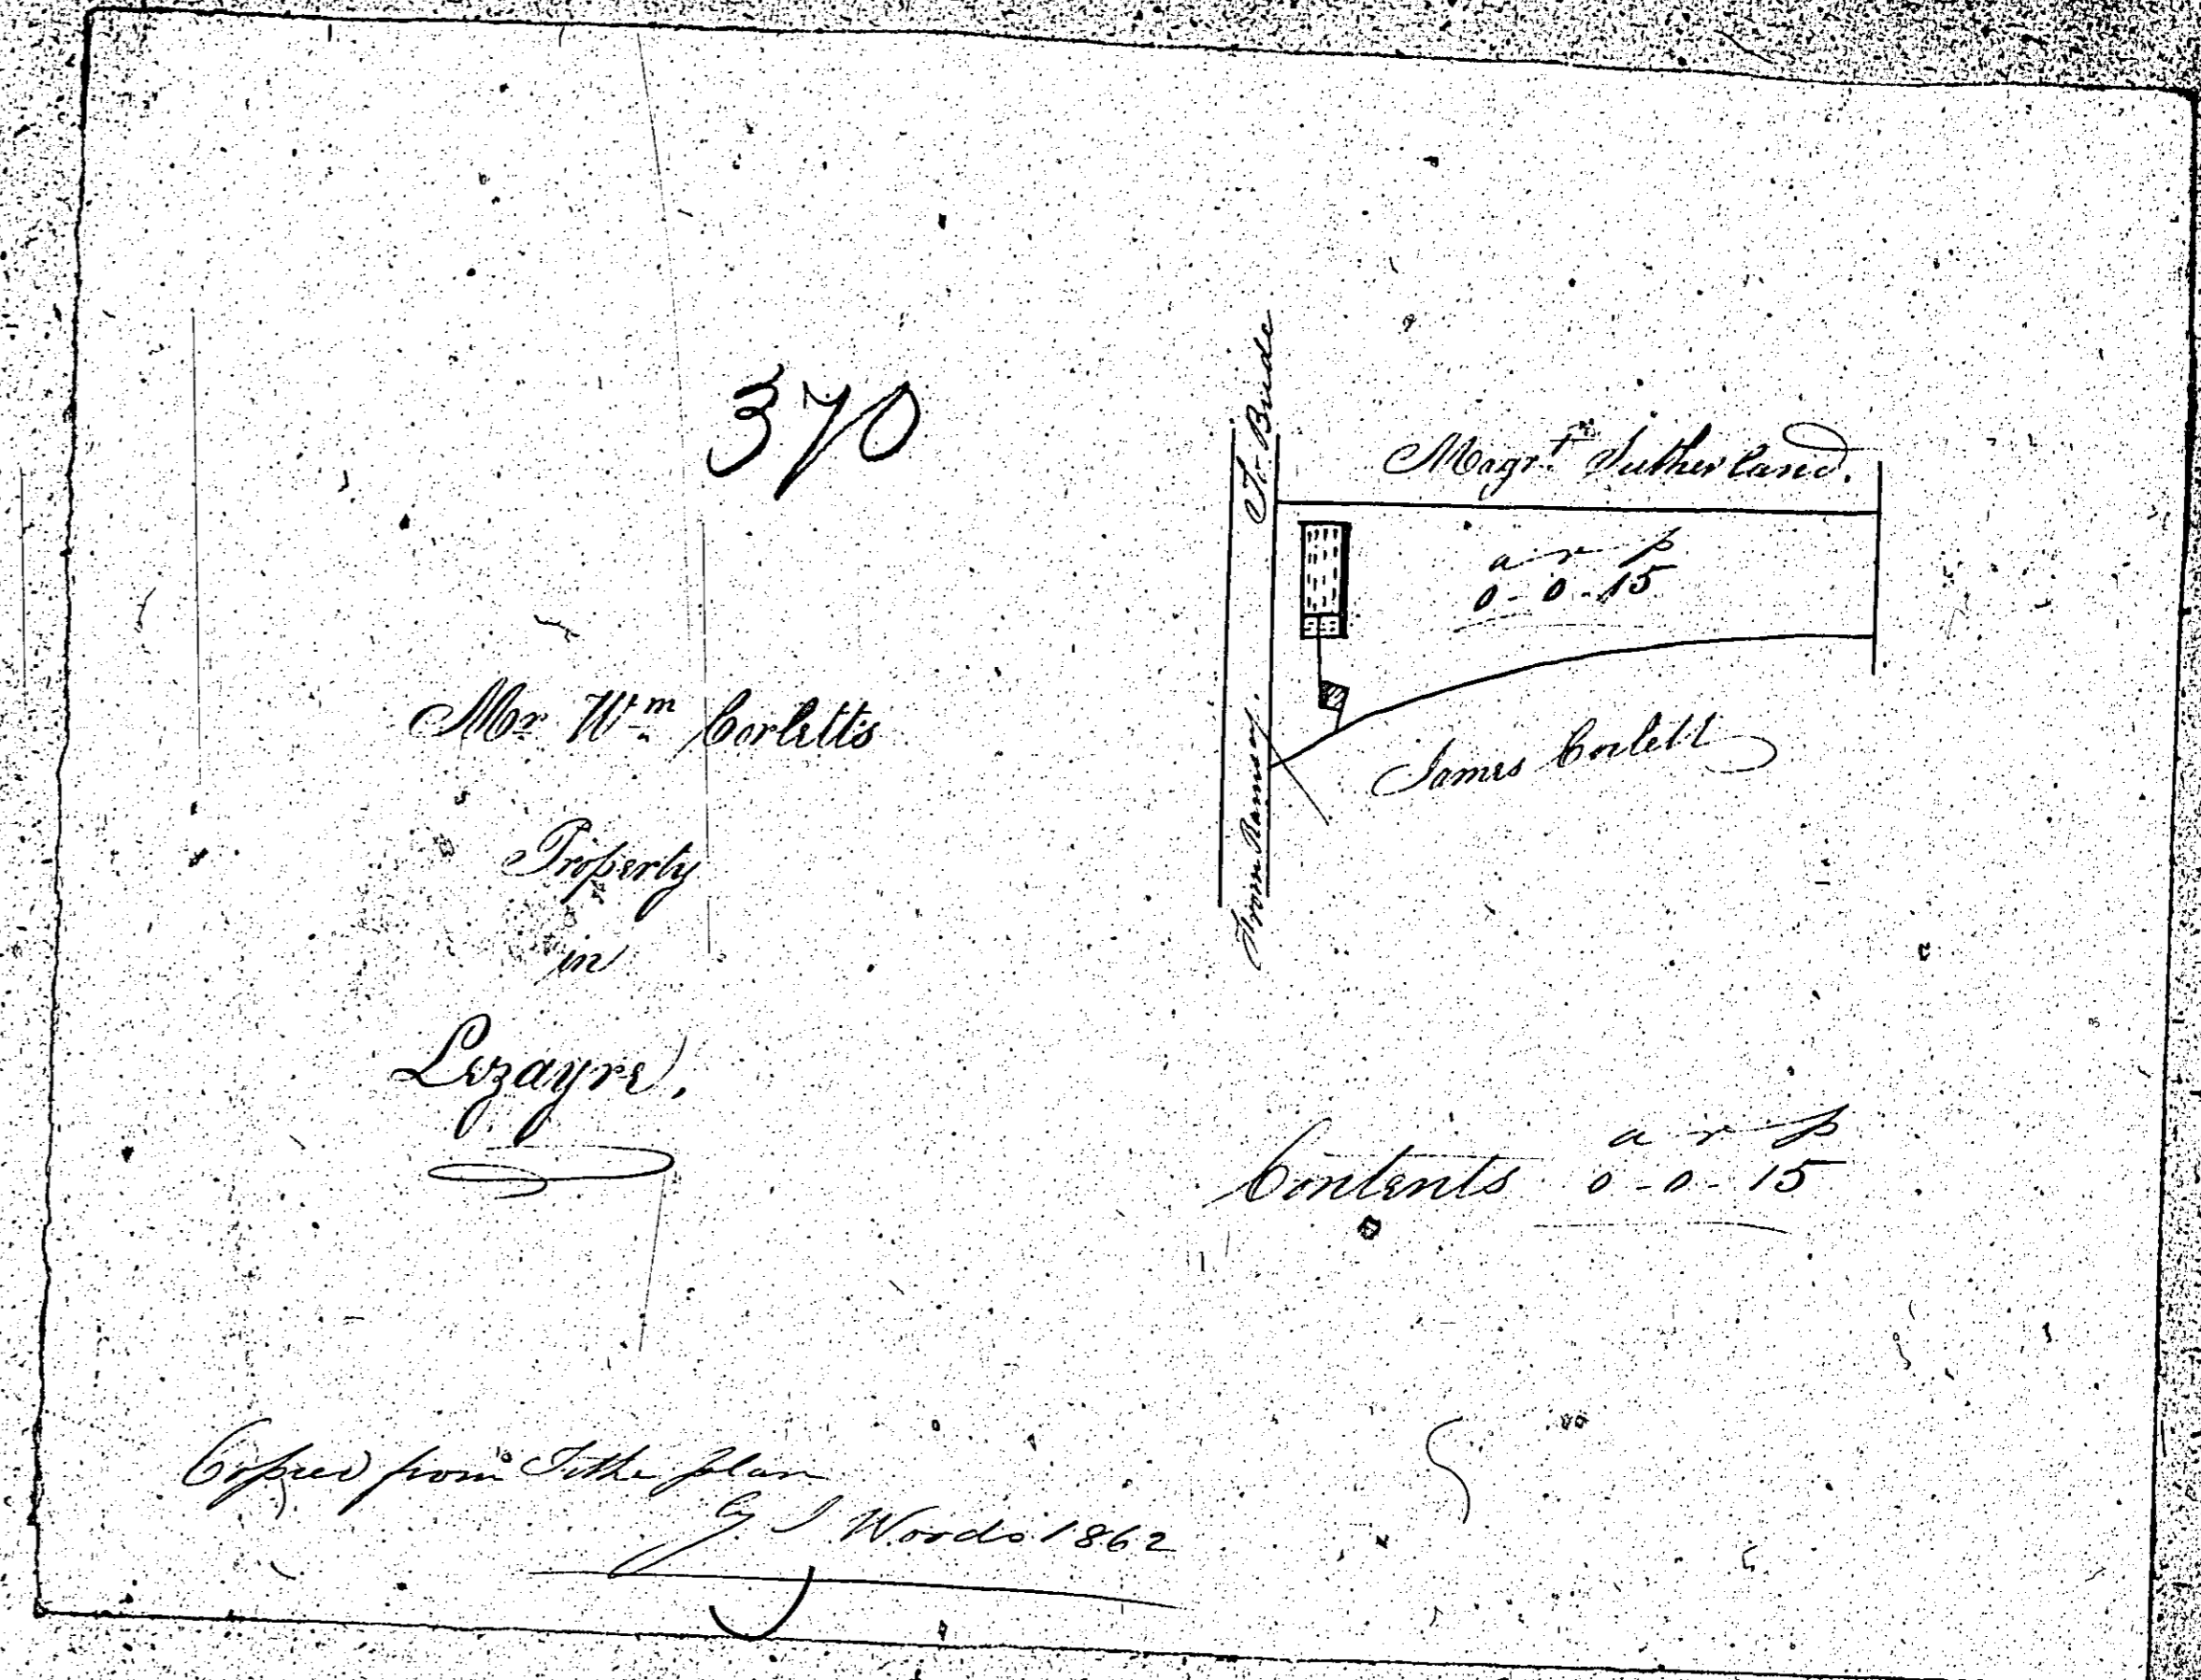 370
Mr Wm Corlett's
Property
in
Lezayre.
To Bride
From Ramsey.
Magrt Sutherland.
a r p
0-0-15
James Corlett
Contents a r p
0-0-15
Copied from Tithe plan
by J Woods 1862